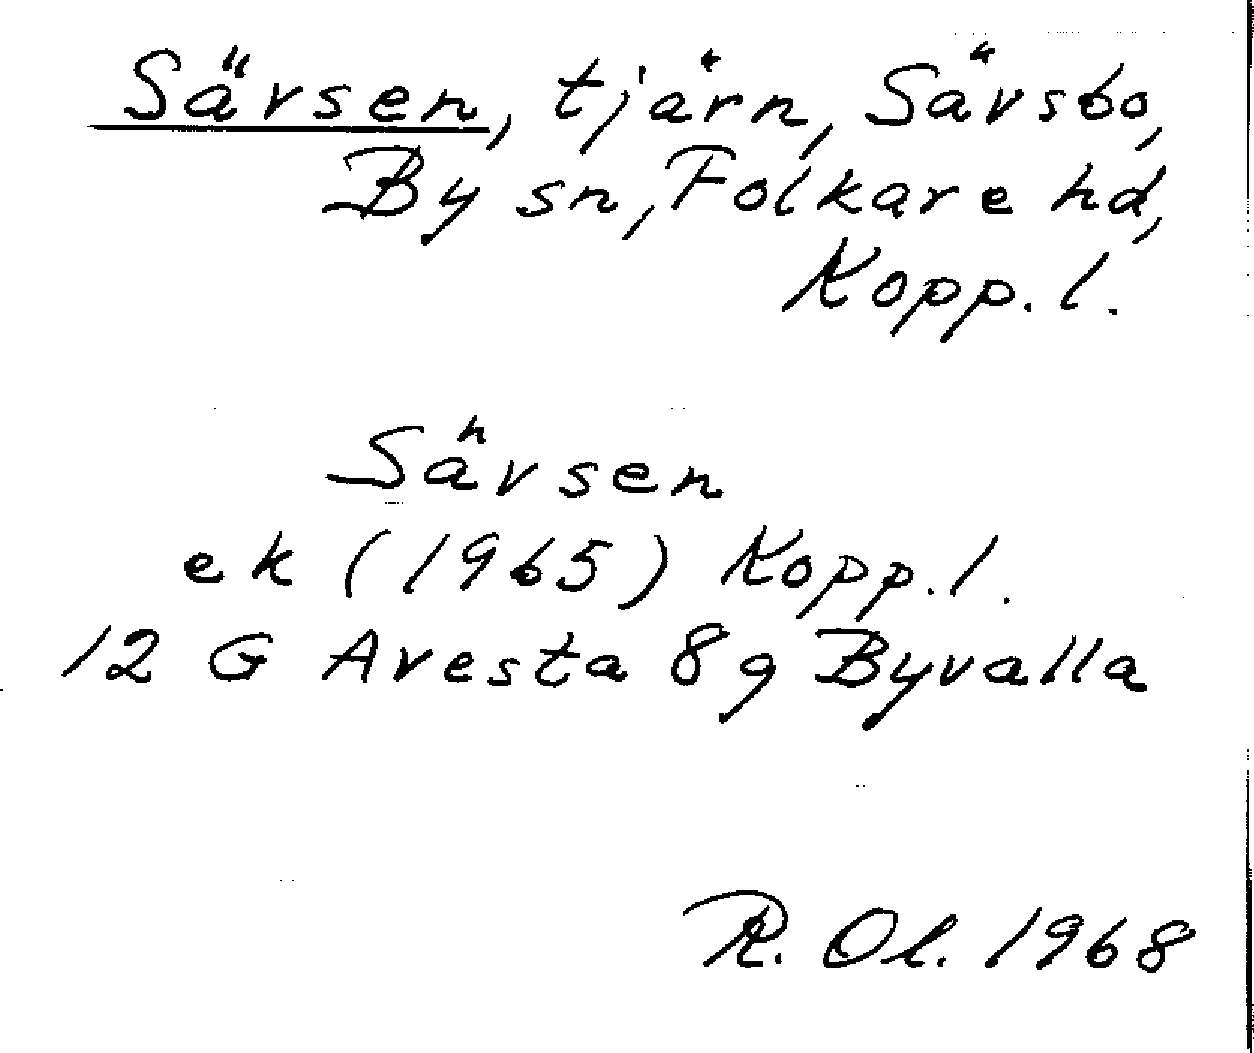 Sävsen, tjärn, Sävsbo,
By sn, Folkare hd,
Kopp. l.
Sävsen
ek (1965) Kopp. l.
12 G Avesta 8 g Byvalla
R. Ol. 1968